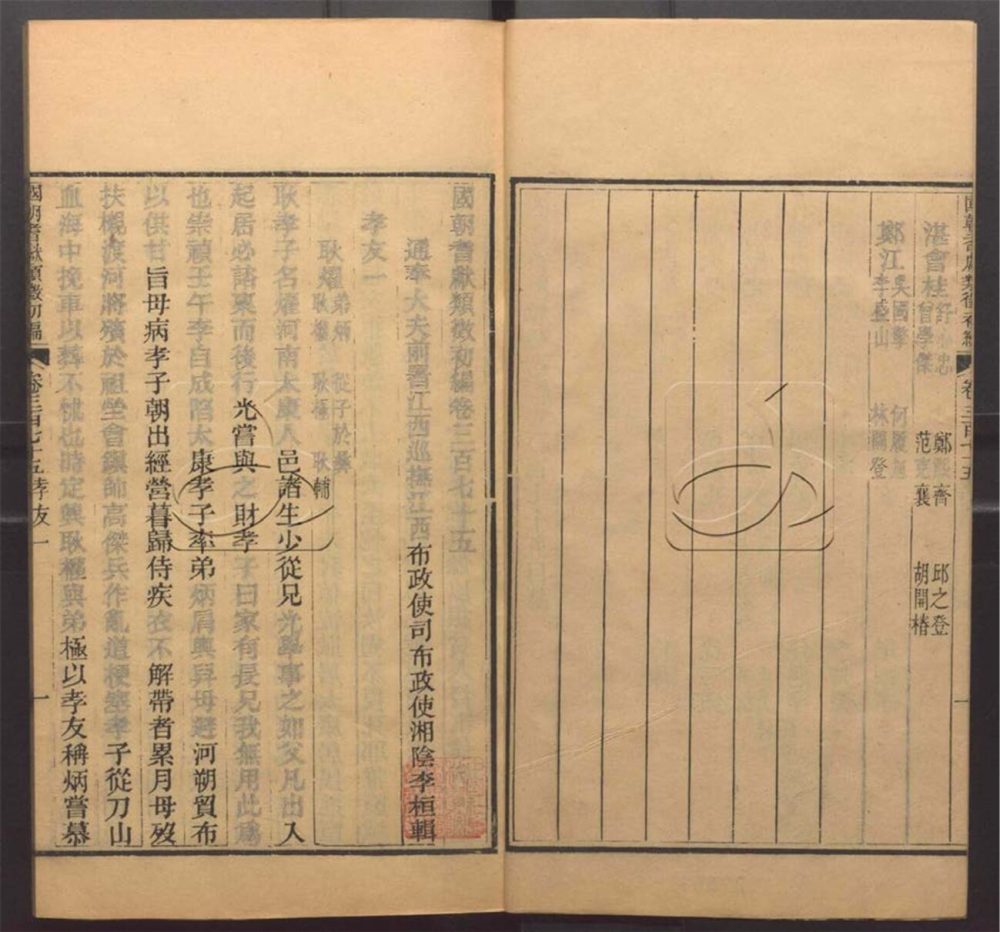 湛會桂 舒 忠 曾學傑 鄭 齊 范 襄 邱之登 胡開樁
鄭江 吳國 李 山 何履 林 登
國朝耆獻類徵初編卷三百七十五
通奉大夫前署江西巡撫江西布政使司布政使湘陰李桓輯
孝友一
耿燿 弟炳 耿 耿極 從子於彝 耿輔
耿孝子名燿河南太康人邑諸生少從兄光學事之如父凡出入
起居必諮稟而後行光嘗與之財孝子曰家有長兄我無用此為
也崇禎壬午李自成陷太康孝子率弟炳肩輿舁母避河朔貿布
以供甘旨母病孝子朝出經營暮歸侍疾衣不解帶者累月母歿
扶櫬渡河將殯於祖塋會鎮帥高傑兵作亂道梗塞孝子從刀山
血海中挽車以葬不 也時定興耿權與弟極以孝友稱炳嘗慕
國朝耆獻類徵初編 卷三百七十五孝友一 一